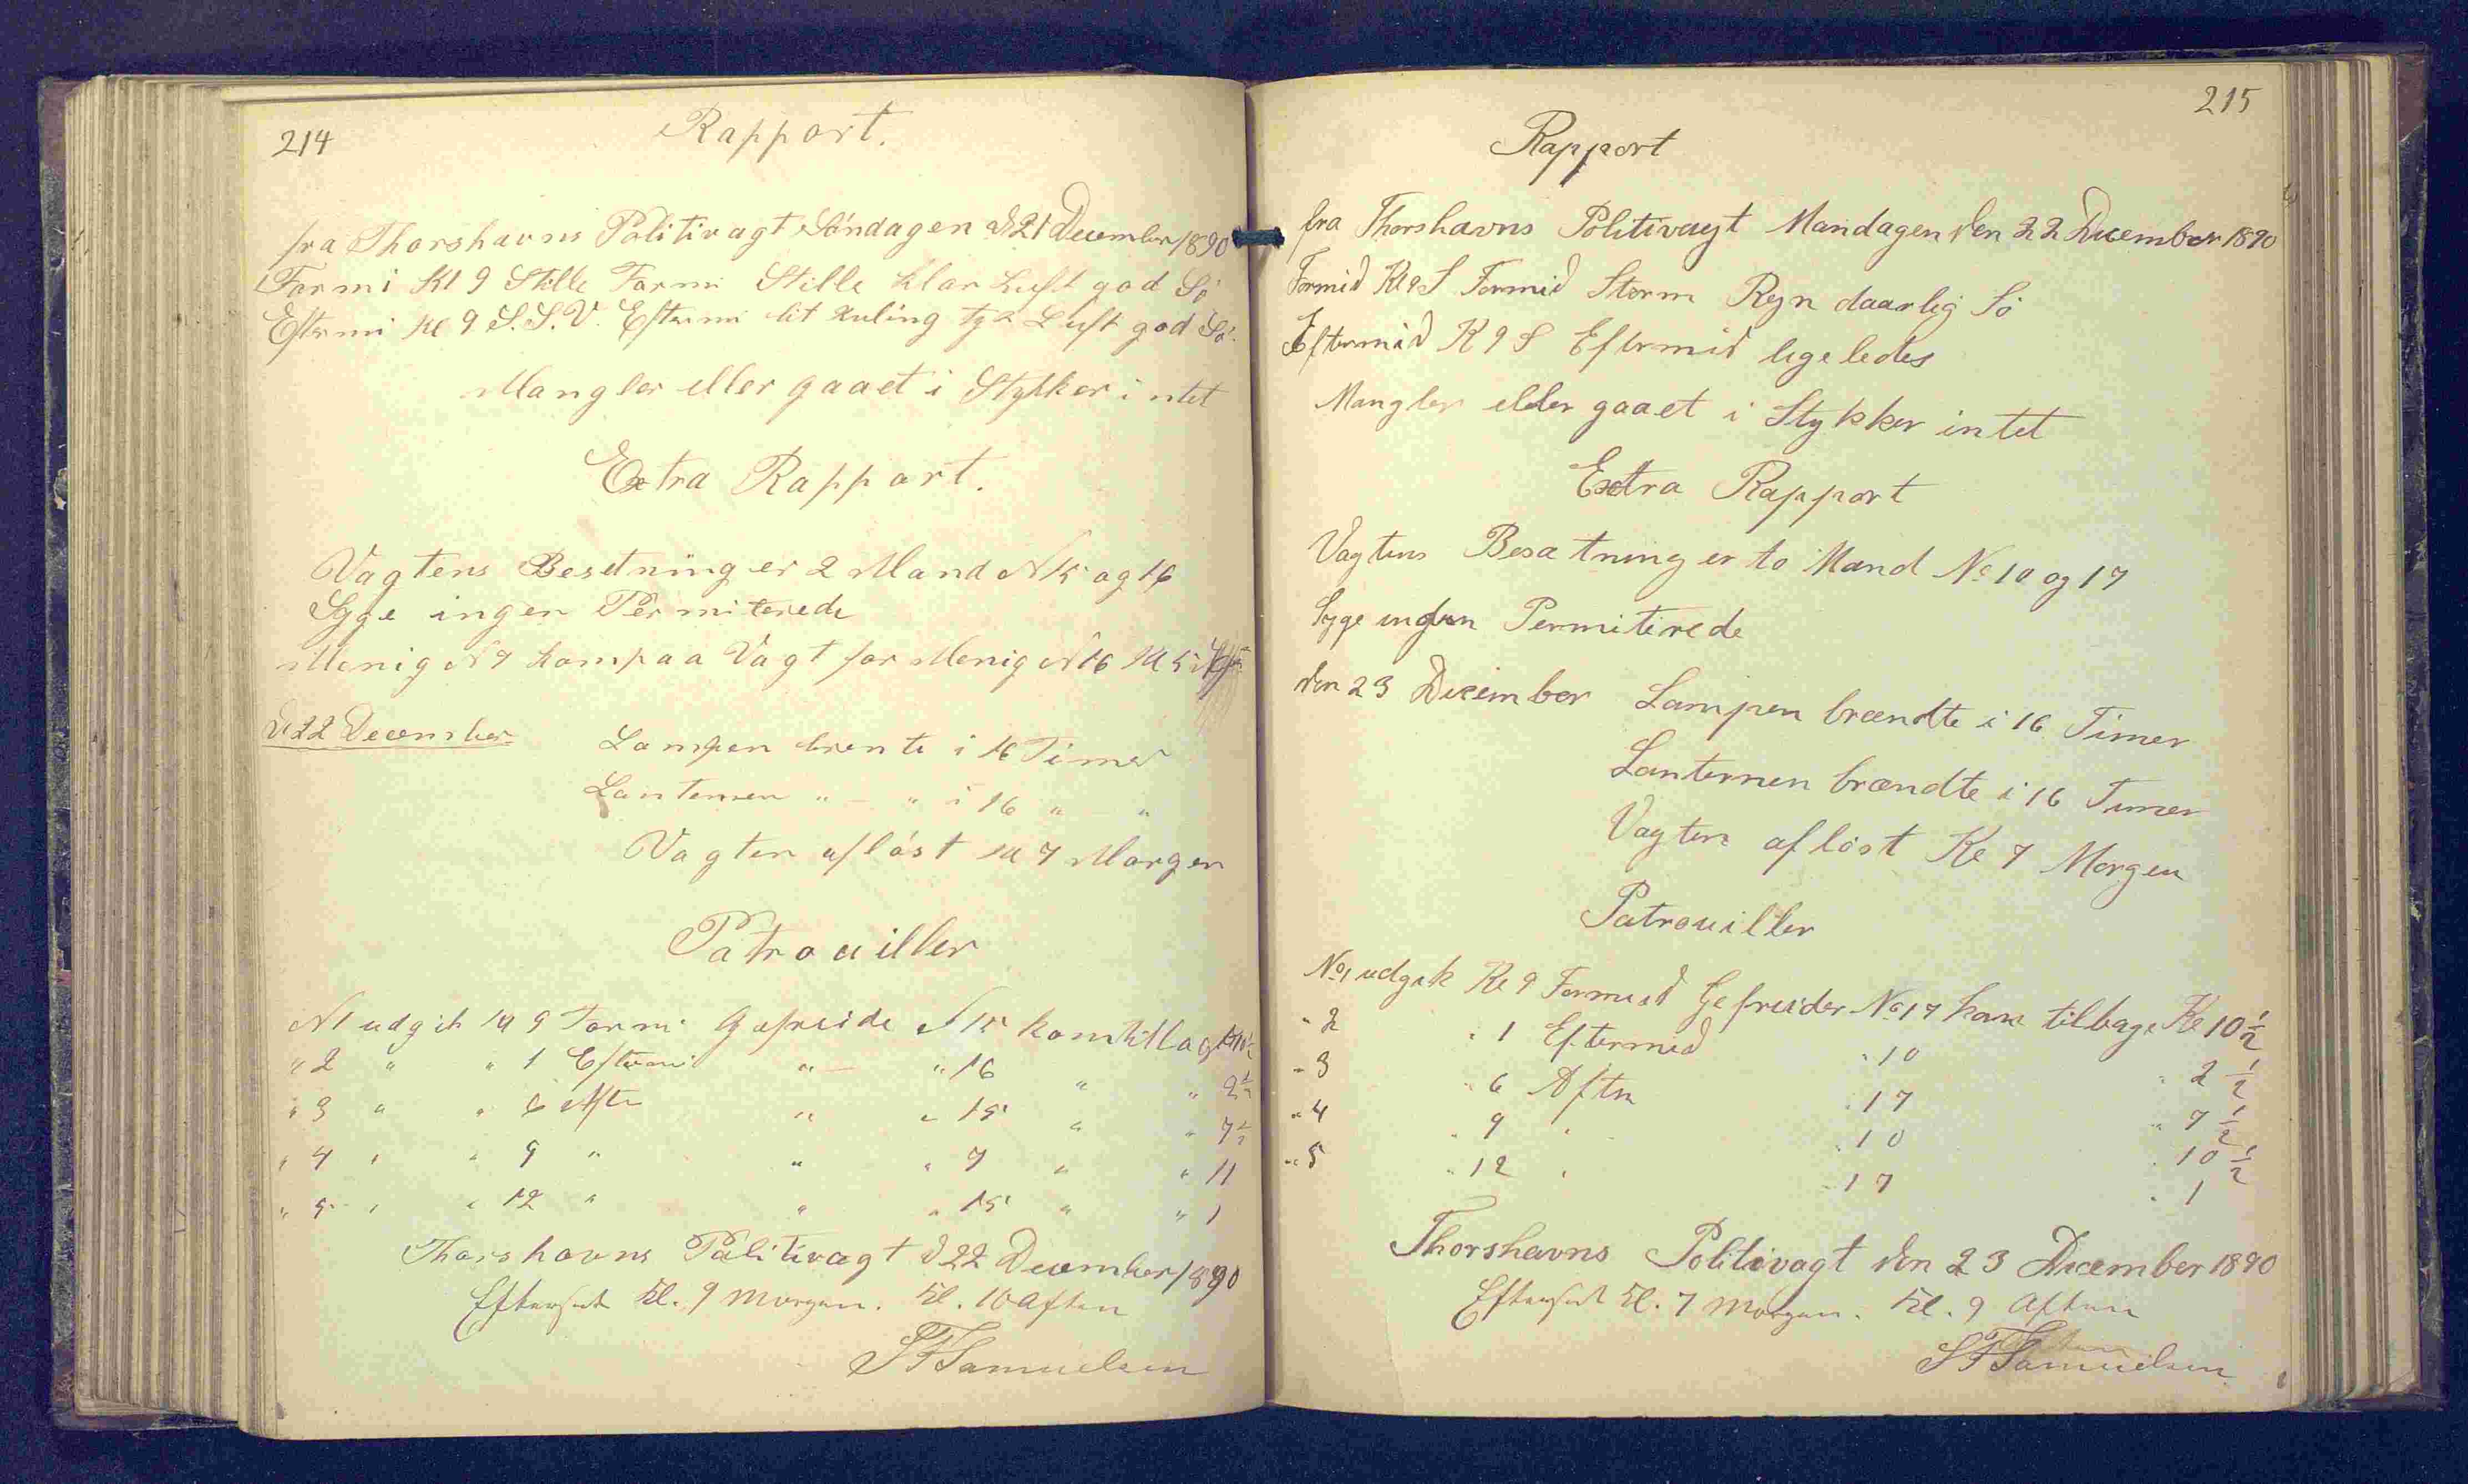 214
Rapport.
fra Thorshavns Politivagt Søndagen d 21 December 1890
Formi Kl 9 Stille Formi Stille klar Luft god Sö
Eftermi Kl 9 S.S.V. Eftermi lit Kuling tyk Luft god Sö.
Mangler eller gaaet i Stykker intet
Extra Rapport.
Vagtens Besetning er 2 Mand N 15 og 16
Syge ingen Permiterede
Menig N 7 kom paa Vagt for Menig N 16 Kl 5
d 22 December Lampen brente i 16 Timer
Lanternen " — " i 16 " — "
Vagten aflöst Kl 7 Morgen
Patrouiller
N 1 udgik Kl 9 Formi Gefreide N 15 kom tilbage Kl 10½
" 2 " " 1 Eftermi " — " 16 " " 2½
" 3 " " 6 Aften " " 15 " " 7½
" 4 " " 9 " " " 7 " " 11
" 5 " " 12 " " " 15 " " 1
Thorshavns Politivagt d 22 December 1890
Efterset Kl. 9 Morgen. Kl. 10 Aften
SFSamuelsen
215
Rapport
fra Thorshavns Politivagt Mandagen den 22 December 1890
Formid Kl 9 S Formid Storm Ryn daarlig Sö
Eftermid K 9 S Eftermid ligeledes
Mangler eller gaaet i Stykker intet
Extra Rapport
Vagtens Besætning er to Mand No 10 og 17
Syge ingen Permiterede
den 23 December Lampen brændte i 16 Timer
Lanternen brændte i 16 Timer
Vagten aflöst Kl 7 Morgen
Patrouiller
No 1 udgik Kl 9 Formid Gefreider No 17 kom tilbage Kl 10½
" 2 " 1 Eftermid " 10 " 2½
" 3 " 6 Aften " 17 " 7½
" 4 " 9 " " 10 " 10½
" 5 " 12 " " 17 " 1
Thorshavns Politivagt den 23 December 1890
Efterset Kl. 7 Morgen. Kl. 9 Aften
SFSamuelsen